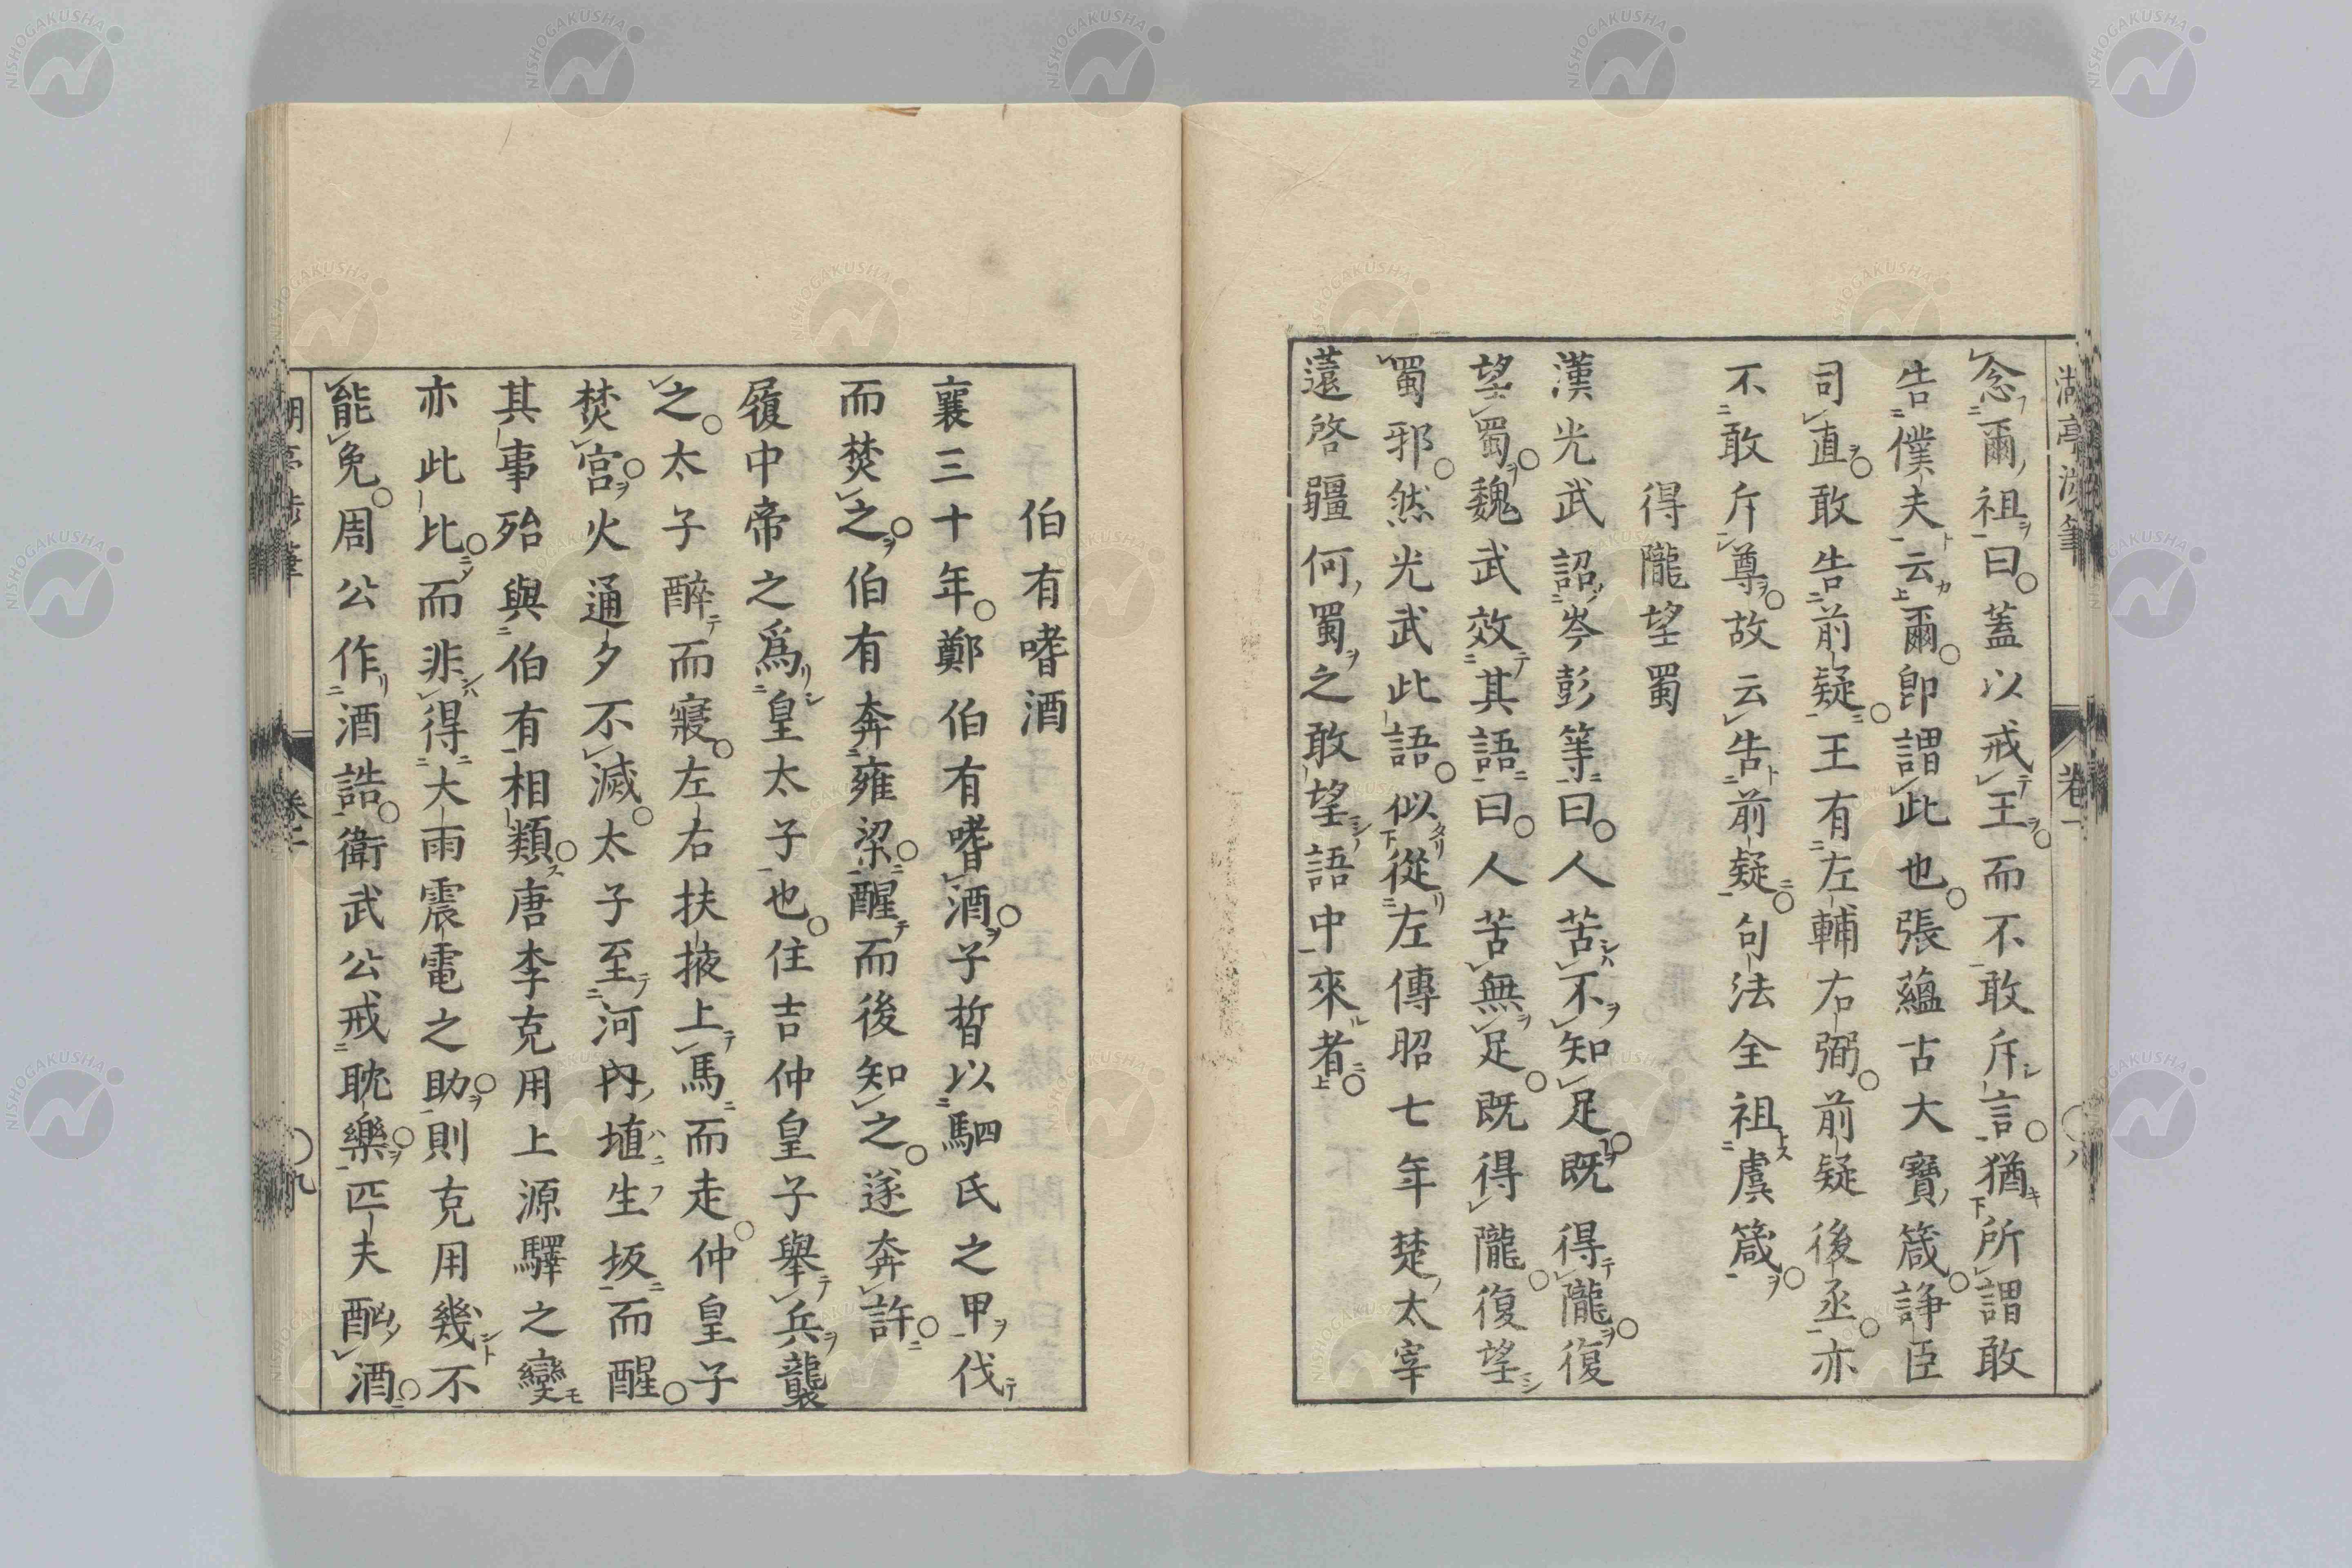 念爾祖曰蓋以戒王而不敢斥言猶所謂敢
告僕夫云爾卽謂此也張蘊古大寶箴諍臣
司直敢告前疑王有左輔右弼前疑後丞亦
不敢斥尊故云告前疑句法全祖虞箴
得隴望蜀
漢光武詔岑彭等曰人苦不知足既得隴復
望蜀魏武效其語曰人苦無足既得隴復望
蜀邪然光武此語似從左傳昭七年楚太宰
薳啓疆何蜀之敢望語中來者
伯有嗜酒
襄三十年鄭伯有嗜酒子晳以駟氏之甲伐
而焚之伯有奔雍梁醒而後知之遂奔許
履中帝之爲皇太子也住吉仲皇子舉兵襲
之太子醉而寢左右扶掖上馬而走仲皇子
焚宮火通夕不滅太子至河內埴生坂而醒
其事殆與伯有相類唐李克用上源驛之變
亦此比而非得大雨震電之助則克用幾不
能免周公作酒誥衛武公戒耽樂匹夫酗酒